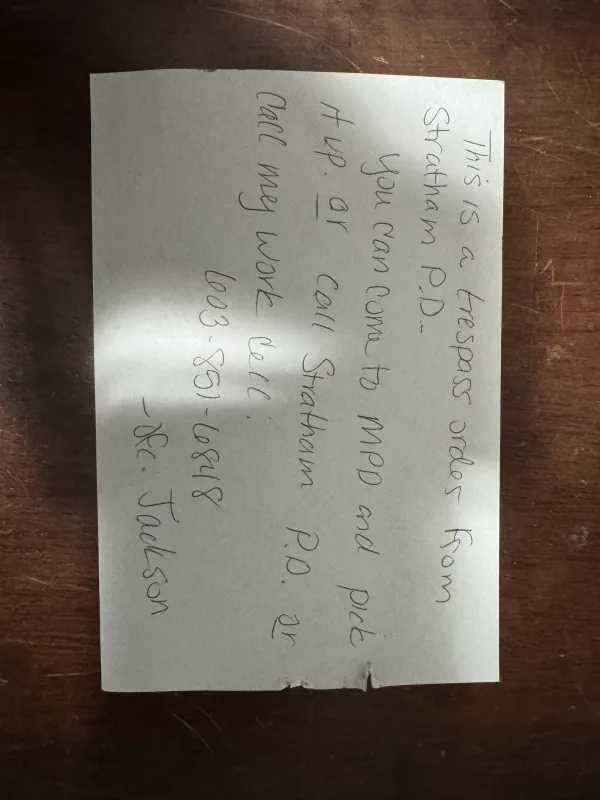 This is a trespass order from
Stratham P.D.
you can come to MPD and pick
it up. or call Stratham P.D. or
Call my work cell.
603-851-6848
- Ofc. Jackson